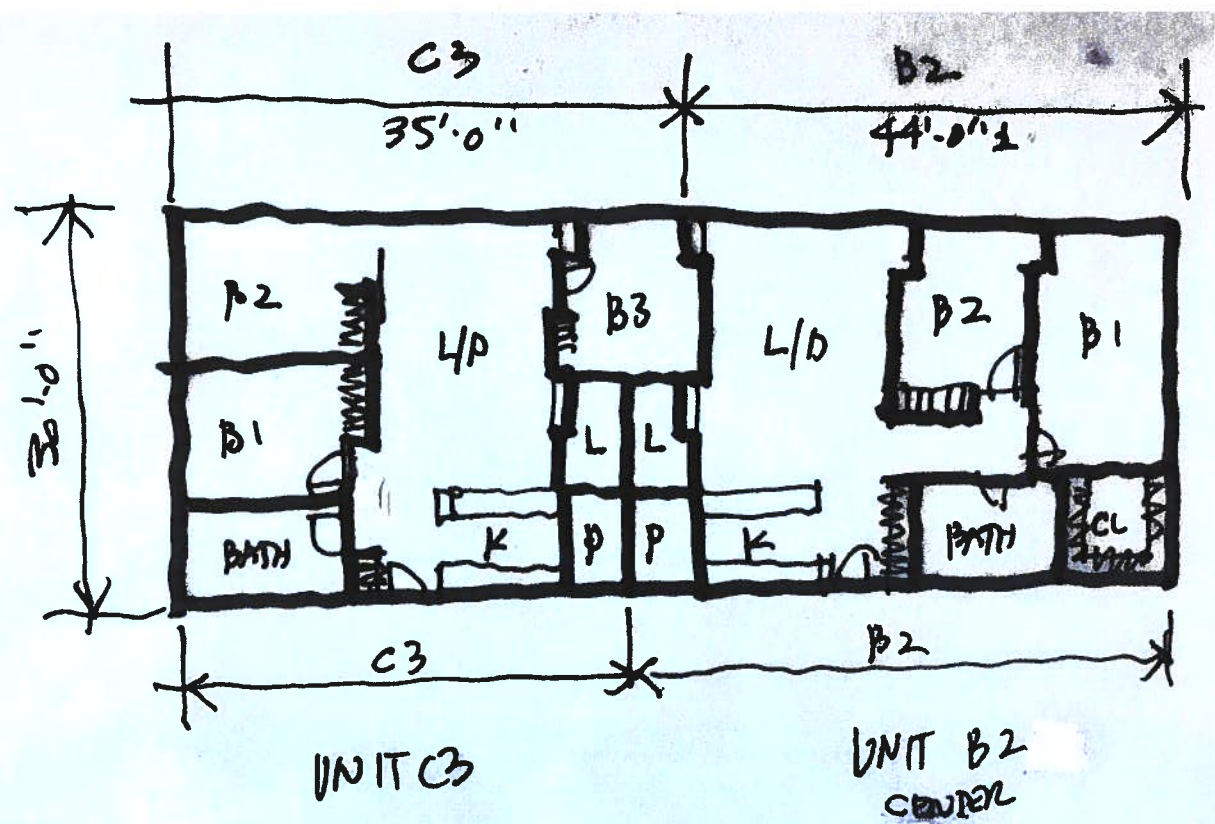 C3
B2
35'-0"
44'-0"±
30'-0"
B2
L/D
B3
L/D
B2
B1
B1
L
L
BATH
K
P
P
K
BATH
CL
C3
B2
UNIT C3
UNIT B2
CENTER